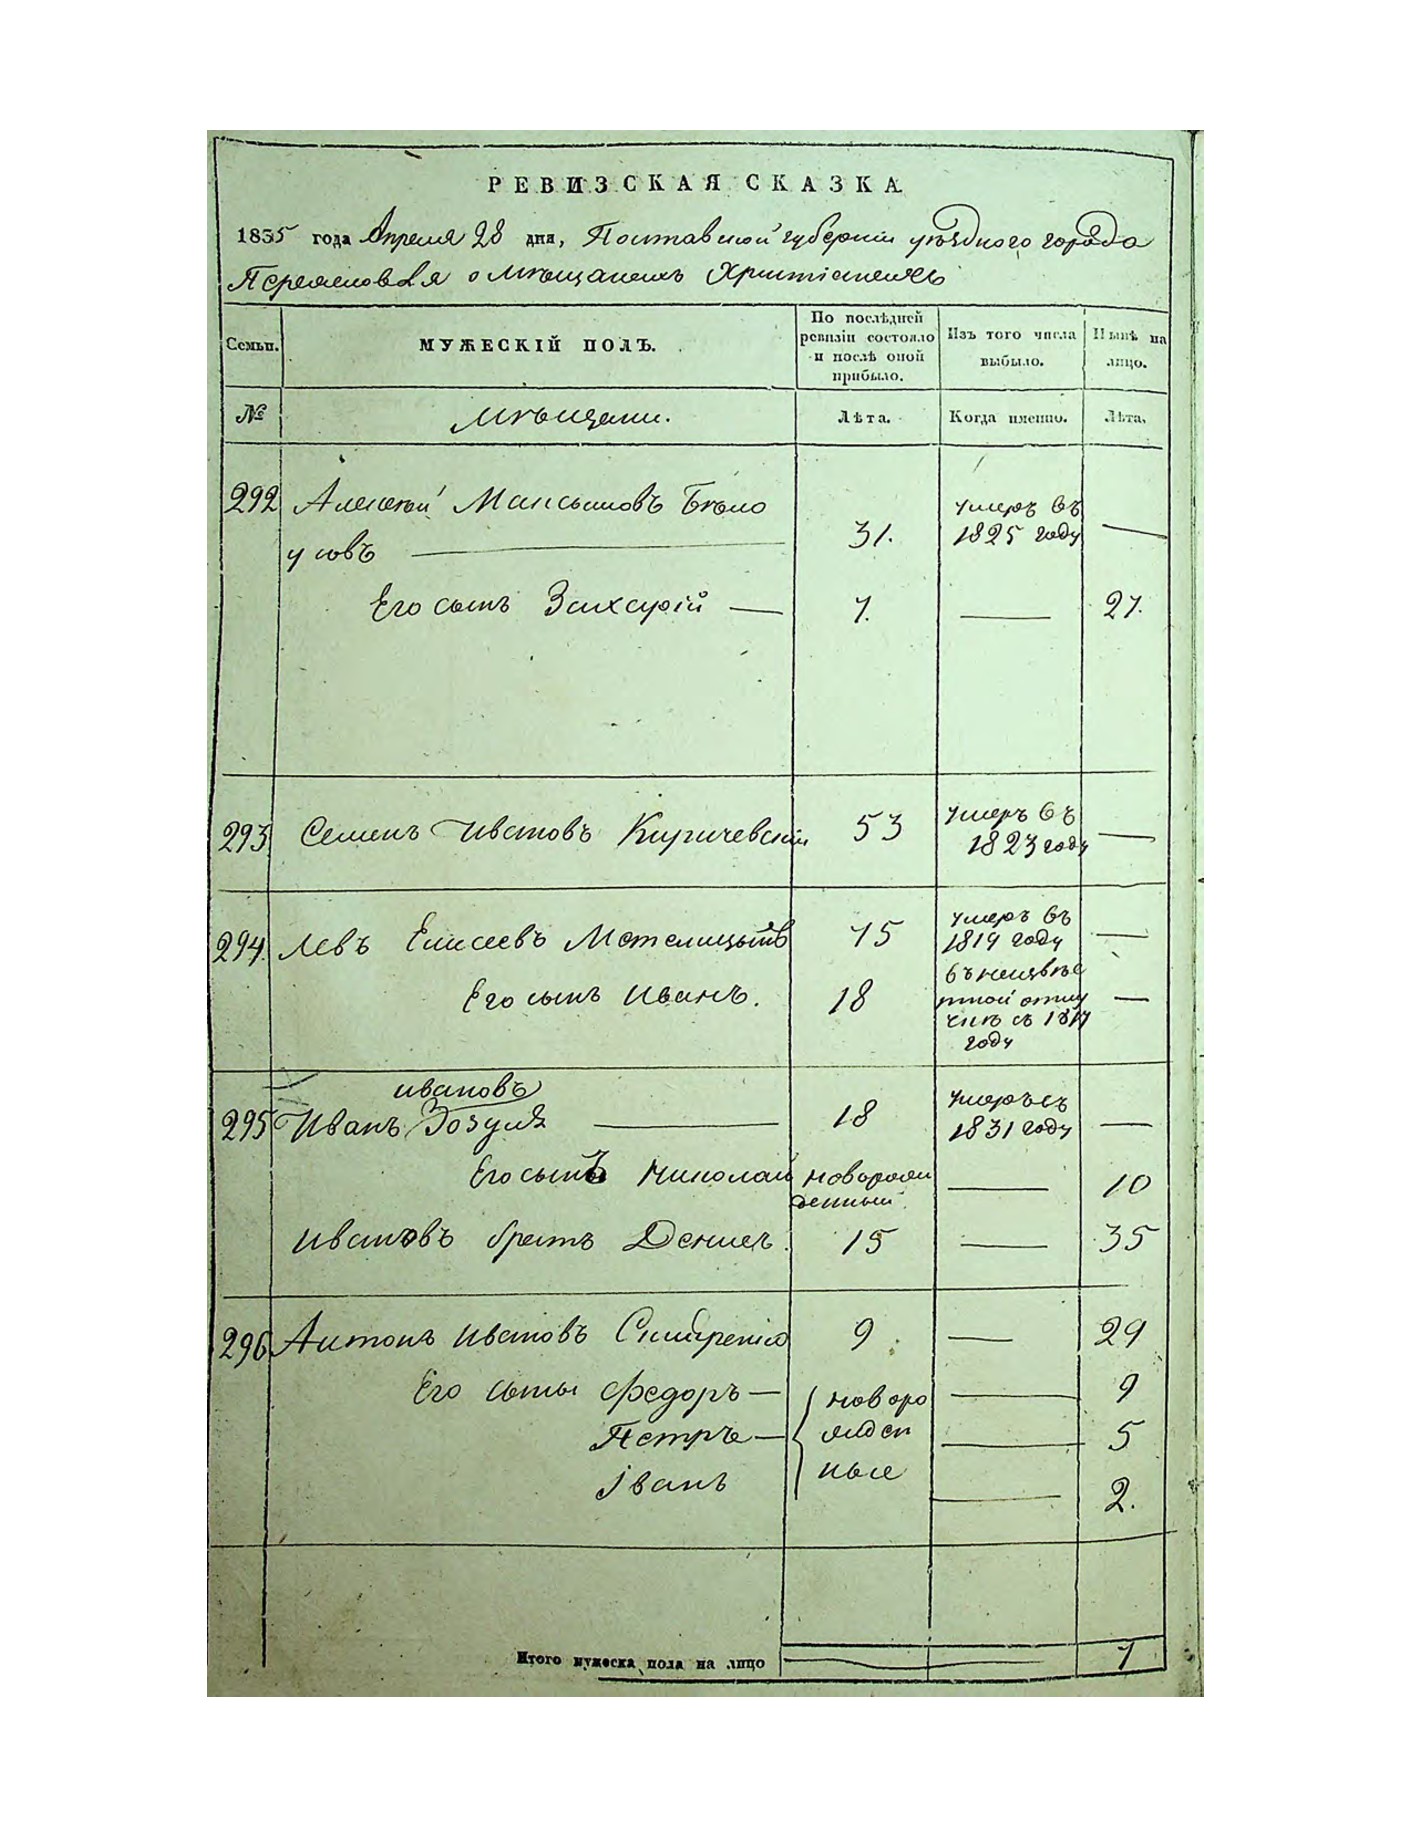 РЕВИЗСКАЯ СКАЗКА.
1835 года Апреля 28 дня, Полтавской губернии уѣзднаго города
Переяслова о мѣщанахъ Христіанехъ
Семьи.
МУЖЕСКІЙ ПОЛЪ.
По послѣдней ревизіи состояло и послѣ оной прибыло.
Изъ того числа выбыло.
Нынѣ на лицо.
№
Мѣщане.
Лѣта.
Когда именно.
Лѣта.
292 Алексѣй Максимовъ Бѣло
усовъ 31. умеръ въ 1825 году
Его сынъ Захарій 7. 27.
293 Семенъ Ивановъ Киричевскій 53 умеръ въ 1823 году
294. Левъ Елисеевъ 75 умеръ въ 1819 году
Его сынъ Иванъ. 18 въ неизвѣстной отлучкѣ съ 1817 году
ивановъ
295 Иванъ Зозуля 18 умеръ въ 1831 году
Его сынъ Николай новорожденный 10
Ивановъ братъ Денисъ. 15 35
296 Антонъ Ивановъ 9. 29
Его сыны Федоръ новоро 9
Петръ жден 5
Іванъ ные 2.
Итого мужеска пола на лицо 7